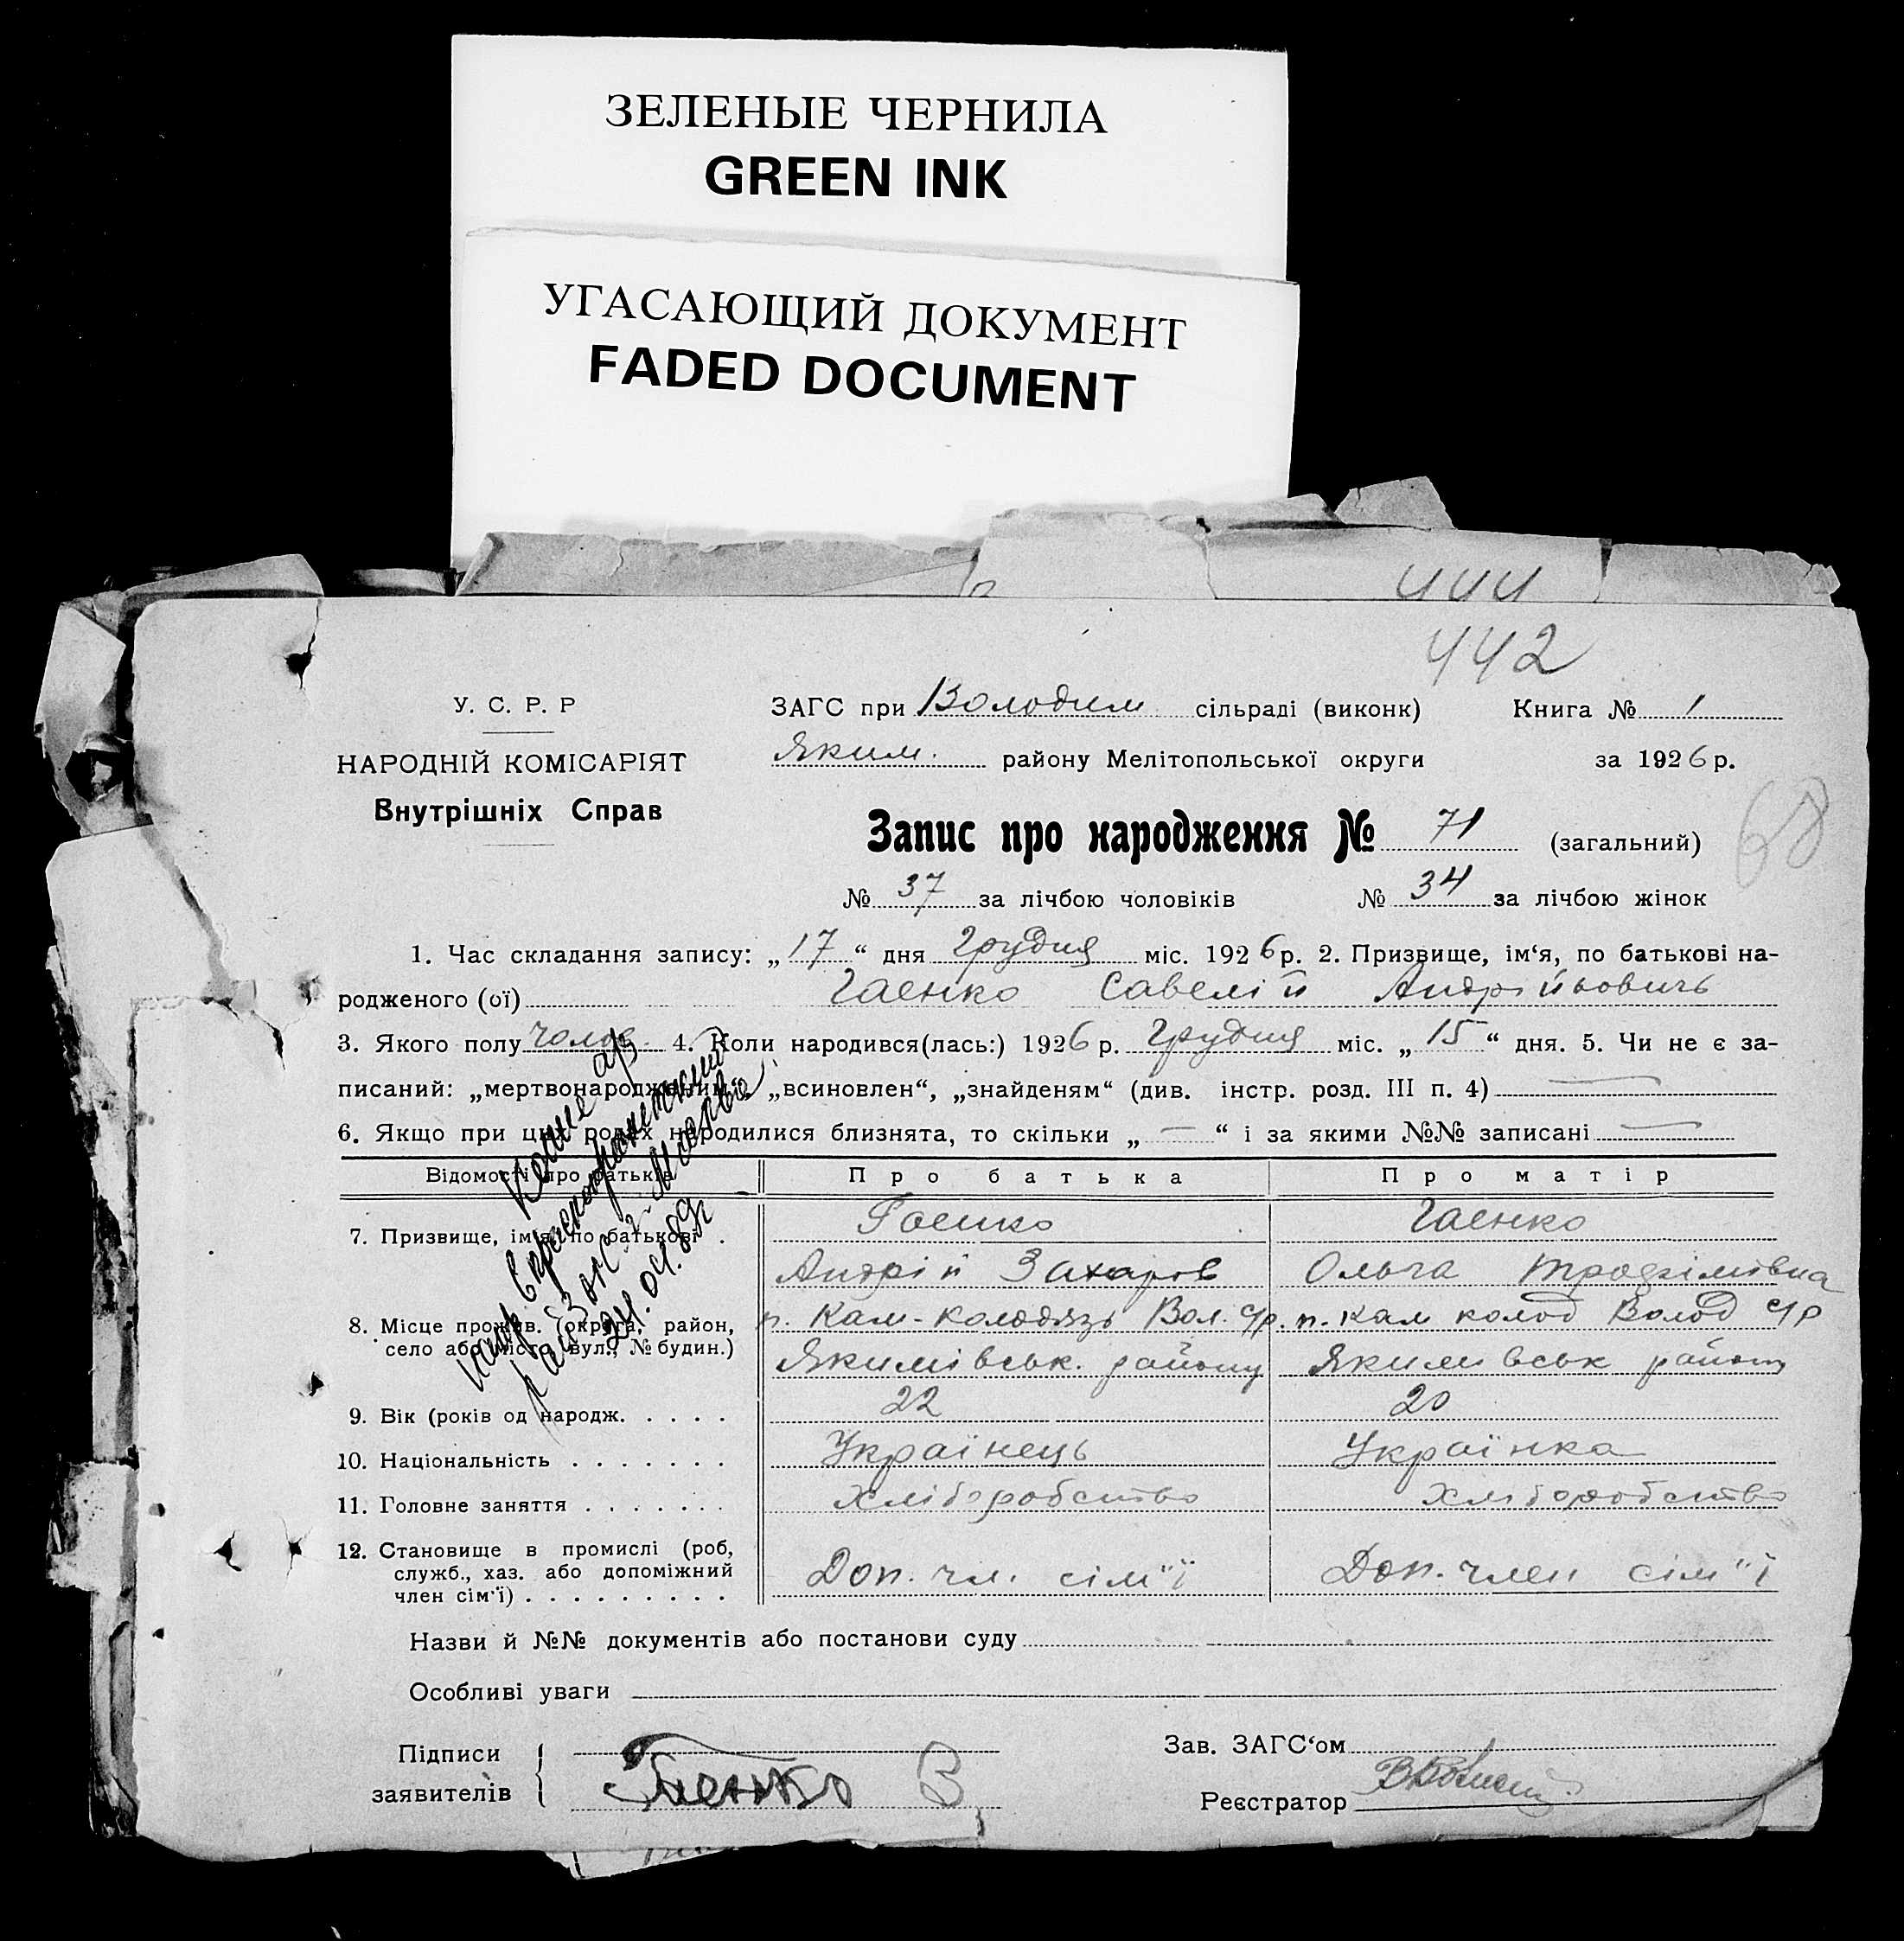 ЗЕЛЕНЫЕ ЧЕРНИЛА
GREEN INK
УГАСАЮЩИЙ ДОКУМЕНТ
FADED DOCUMENT
444
442
У. С. Р. Р
НАРОДНІЙ КОМІСАРІЯТ
Внутрішніх Справ
ЗАГС при Володим сільраді (виконк) Книга № 1
Яким. району Мелітопольської округи за 1926 р.
68
Запис про народження № 71 (загальний)
№ 37 за лічбою чоловіків № 34 за лічбою жінок
1. Час складання запису: „17“ дня Грудня міс. 1926 р. 2. Призвище, ім‘я, по батькові на-
родженого (ої) Гаенко Савелій Андрійовичь
3. Якого полу чолов. 4. Коли народився(лась:) 1926 р. Грудня міс. „15“ дня. 5. Чи не є за-
писаний: „мертвонародженим“, „всиновлен“, „знайденям“ (див. інстр. розд. III п. 4) —
6. Якщо при цих родах народилися близнята, то скільки „—“ і за якими №№ записані —
Відомості про батьків Про батька Про матір
7. Призвище, ім‘я, по батькові . Гаенко Гаенко
Андрій Захаров Ольга Трофімівна
8. Місце прожив. (округа, район, село або місто, вул., № будин.) п. Кам-колодязь Вол. с/р. п. Кам колод Волод с/р
Якимівськ. району Якимівськ району
9. Вік (років од народж. . . . . 22 20
10. Національність . . . . . . . Українець Українка
11. Головне заняття . . . . . . . Хліборобство Хліборобство
12. Становище в промислі (роб, служб., хаз. або допоміжний член сім‘ї) . . . . . . . . . Доп. чл. сім"ї Доп. член сім"ї
Назви й №№ документів або постанови суду
Особливі уваги
24.04.89
Підписи
заявителів Гаенко В
Зав. ЗАГС‘ом
Реєстратор